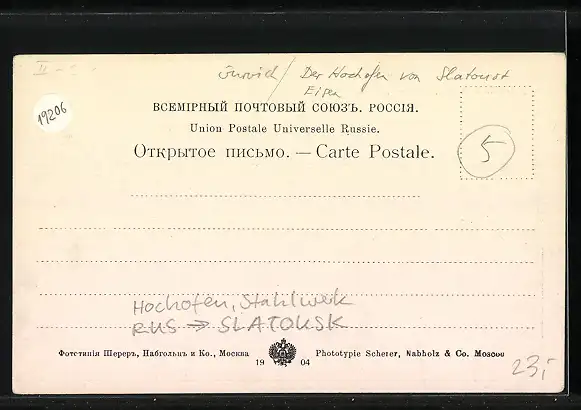 II - - -
/ Der Hochofen von Slatoust
Eisen
19206
ВСЕМІРНЫЙ ПОЧТОВЫЙ СОЮЗЪ. РОССІЯ.
Union Postale Universelle Russie.
Открытое письмо. — Carte Postale.
5
Hochofen, Stahlwerk
RUS → SLATOUSK
Фототипія Шереръ, Набгольцъ и Ко., Москва 19 04 Phototypie Scherer, Nabholz & Co. Moscou
23,-